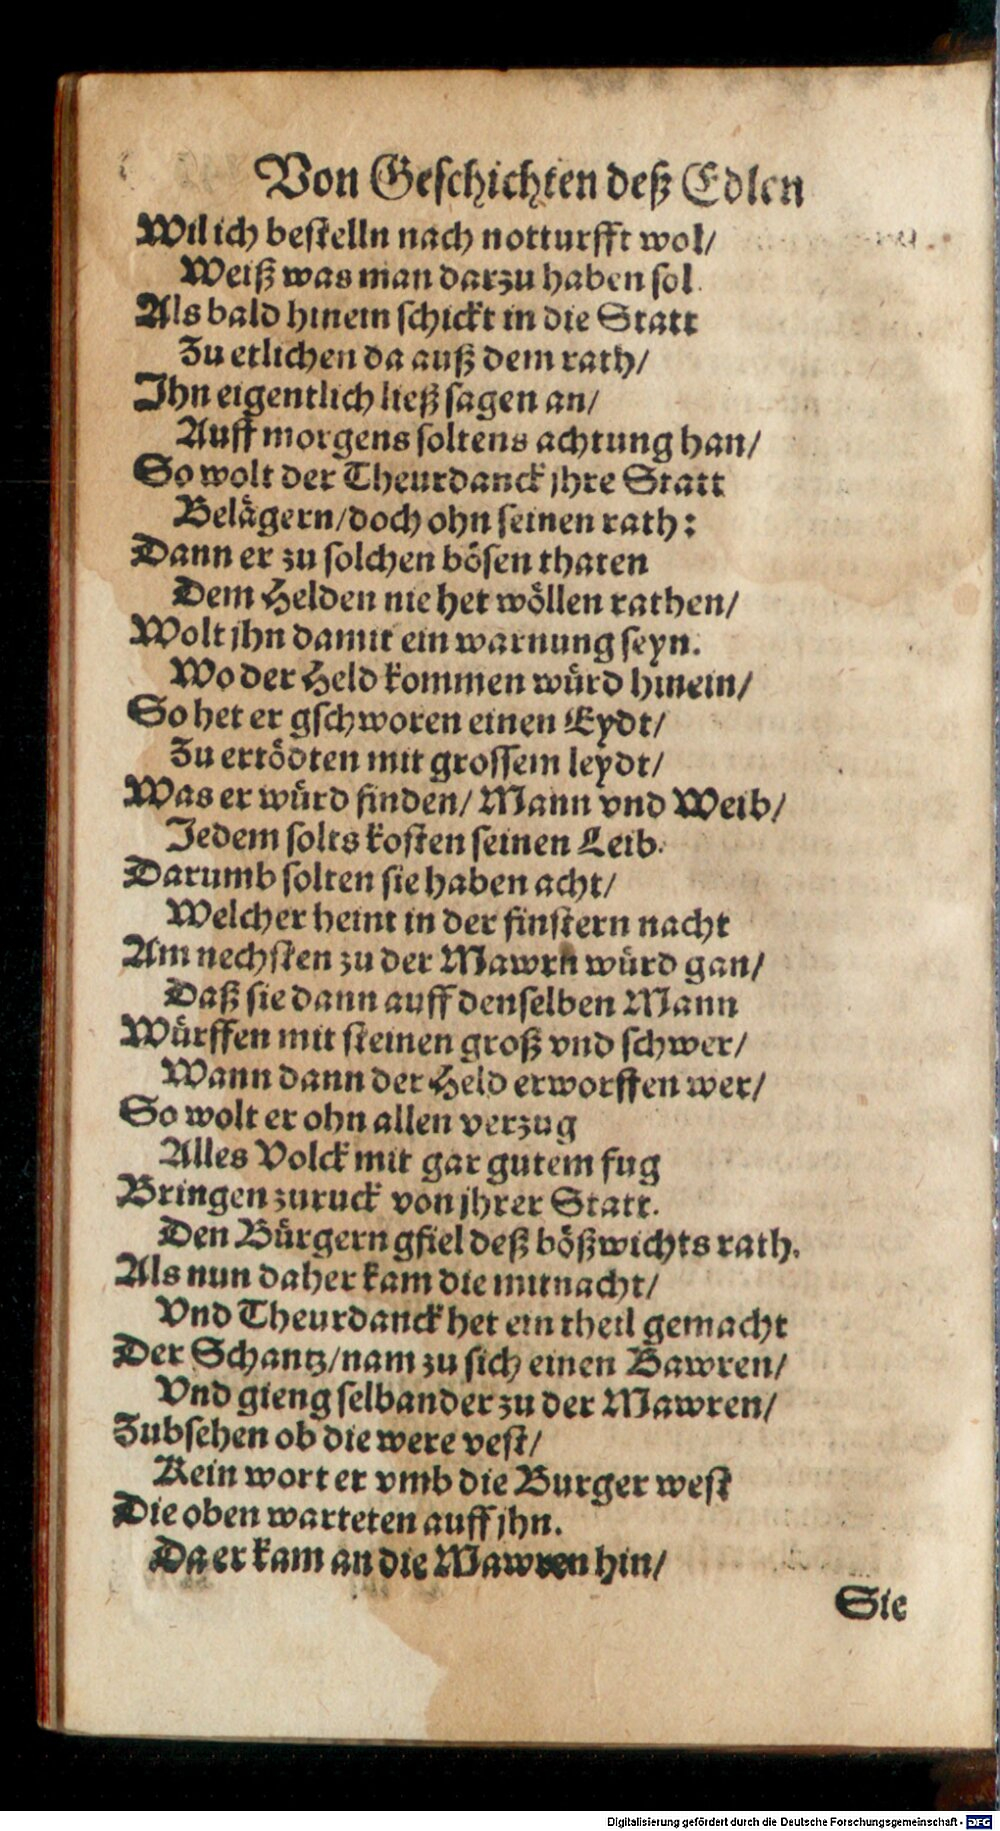 Von Geschichten deß Edlen
Wil ich bestelln nach notturfft wol/
Weiß was man darzu haben sol.
Als bald hinein schickt in die Statt
Zu etlichen da auß dem rath/
Ihn eigentlich ließ sagen an/
Auff morgens soltens achtung han/
So wolt der Theurdanck jhre Statt
Belägern/doch ohn seinen rath:
Dann er zu solchen bösen thaten
Dem Helden nie het wöllen rathen/
Wolt jhn damit ein warnung seyn.
Wo der Held kommen würd hinein/
So het er gschworen einen Eydt/
Zu ertödten mit grossem leydt/
Was er würd finden/ Mann vnd Weib/
Jedem solts kosten seinen Leib.
Darumb solten sie haben acht/
Welcher heint in der finstern nacht
Am nechsten zu der Mawrn würd gan/
Daß sie dann auff denselben Mann
Würffen mit steinen groß vnd schwer/
Wann dann der Held erworffen wer/
So wolt er ohn allen verzug
Alles Volck mit gar gutem fug
Bringen zuruck von jhrer Statt.
Den Bürgern gfiel deß bößwichts rath.
Als nun daher kam die mitnacht/
Vnd Theurdanck het ein theil gemacht
Der Schantz/nam zu sich einen Bawren/
Vnd gieng selbander zu der Mawren/
Zubsehen ob die were vest/
Kein wort er vmb die Burger west
Die oben warteten auff jhn.
Da er kam an die Mawren hin/
Sie
Digitalisierung gefördert durch die Deutsche Forschungsgemeinschaft - DFG